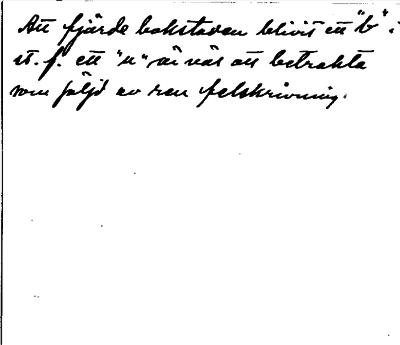 Att fjärde bokstaven blivit ett "b" i
st. f. ett "u" är väl att betrakta
som följd av ren felskrivning.